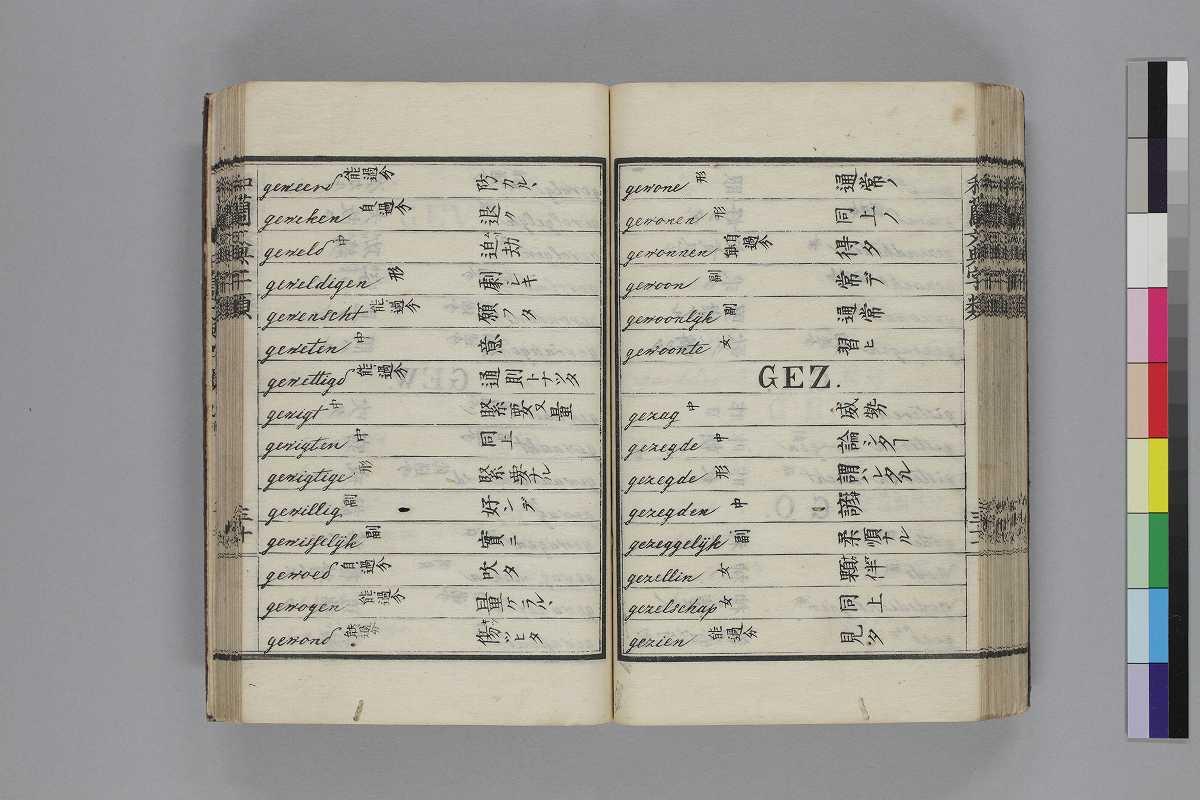 geweerd 能過分 防カルヽ
geweken 自過分 退ク
geweld 中 迫劫
geweldigen 形 劇シキ
gewenscht 能過分 願フタ
geweten 中 意
gewettigd 能過分 通則トナツタ
gewigt 中 緊要又量
gewigten 中 同上
gewigtige 形 緊要ナル
gewillig 副 好ンデ
gewisselijk 副 實ニ
gewoed 自過分 吹タ
gewogen 能過分 量ケラルヽ
gewond 能過分 傷ツヒタ
gewone 形 通常ノ
gewonen 形 同上ノ
gewonnen 自能過分 得タ
gewoon 副 常デ
gewoonlijk 副 通常
gewoonte 女 習ヒ
GEZ.
gezag 中 威勢
gezegde 中 論シタ
gezegde 形 謂ハレタル
gezegden 中
gezeggelijk 副 柔順ナル
gezellin 女 伴
gezelschap 女 同上
gezien 能過分 見タ